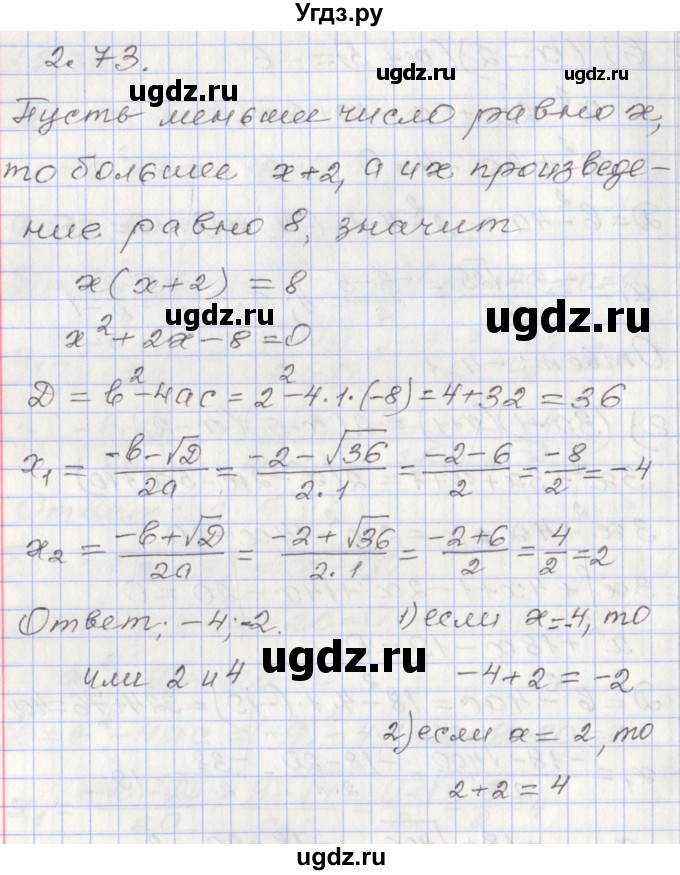 Угдз.ру
2.73.
ugdz.ru ugdz.ru
Пусть меньшее число равно x,
то большее x+2, а их произведе-
ние равно 8, значит
x(x+2) = 8
ugdz.ru ugdz.ru
x² + 2x - 8 = 0
D = b² - 4ac = 2² - 4·1·(-8) = 4 + 32 = 36
x₁ = (-b - √D)/2a = (-2 - √36)/(2·1) = (-2-6)/2 = -8/2 = -4
x₂ = (-b + √D)/2a = (-2 + √36)/(2·1) = (-2+6)/2 = 4/2 = 2
ugdz.ru ugdz.ru
Ответ: -4; -2. 1) если x=-4, то
или 2 и 4 -4+2 = -2
2) если x = 2, то
ugdz.ru ugdz.ru
2+2 = 4
ugdz.ru